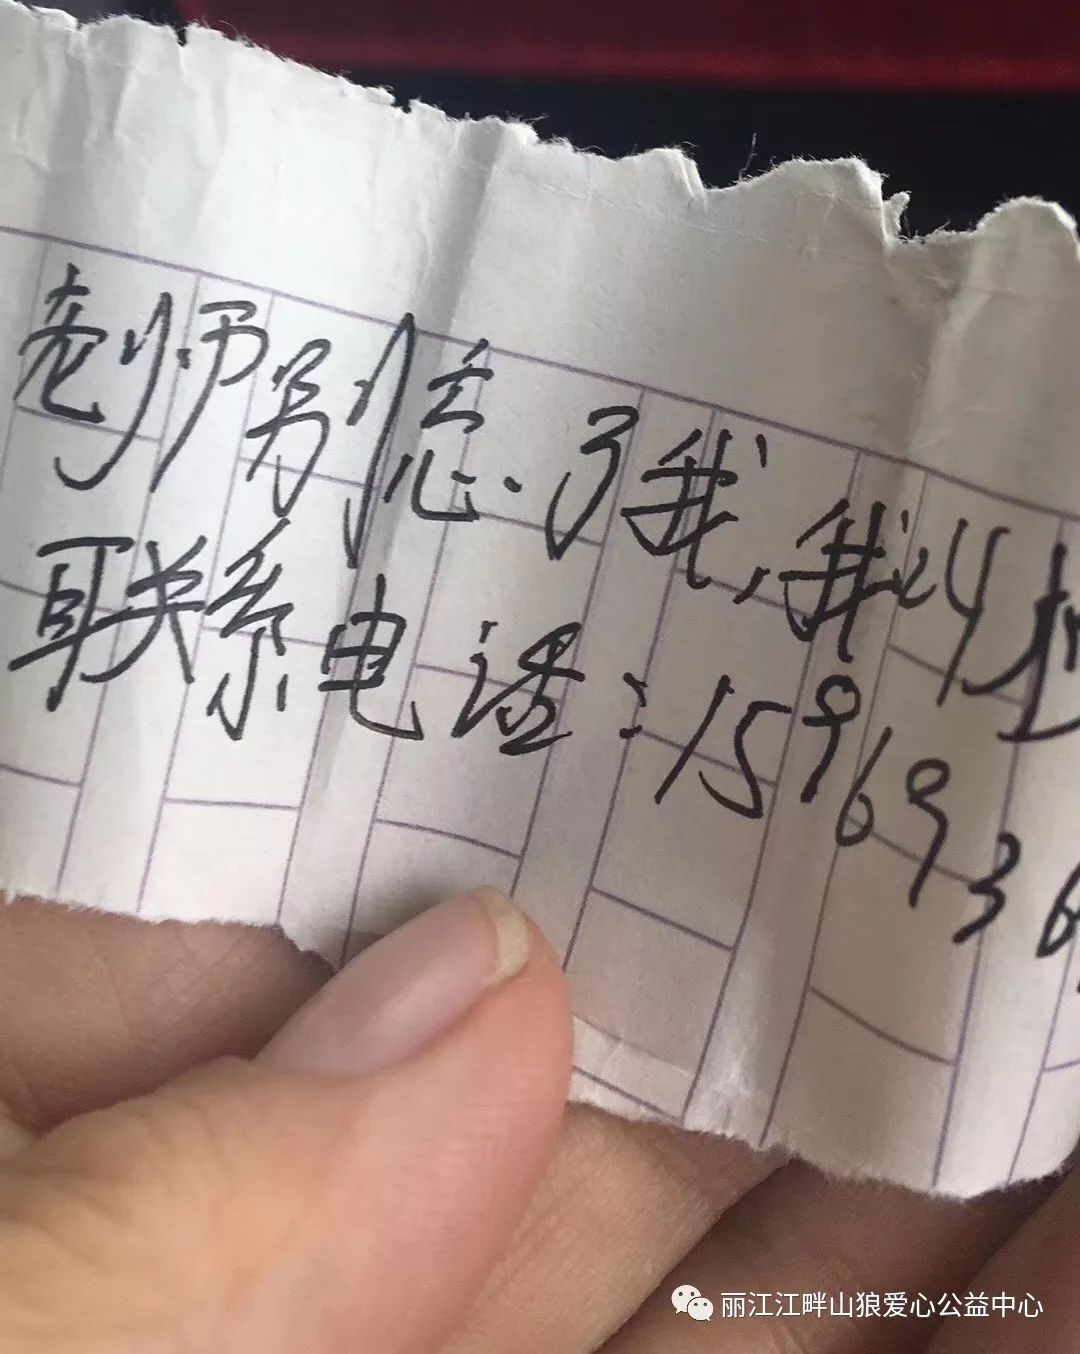 老师别忘了我,我叫
联系电话:1596936
丽江江畔山狼爱心公益中心